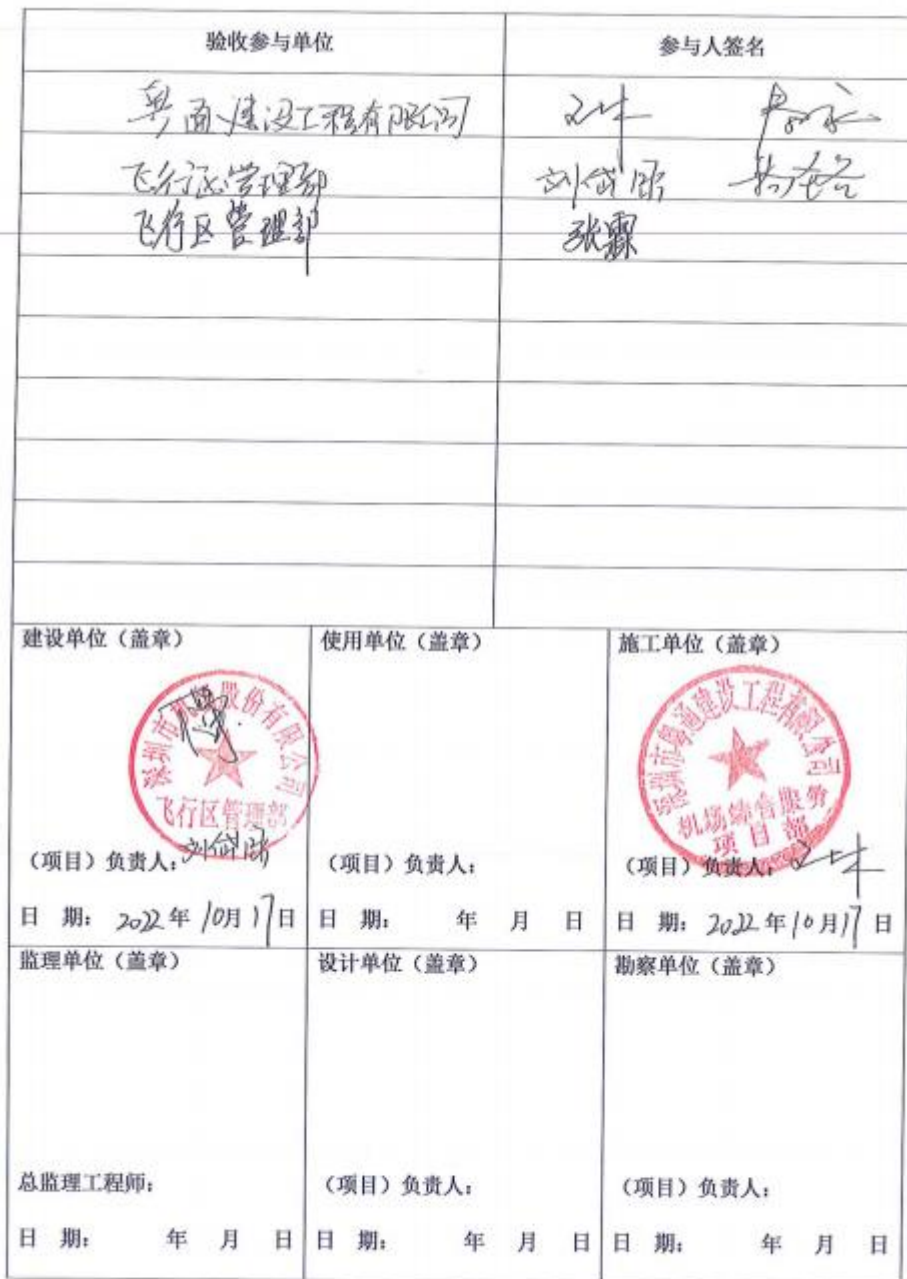 验收参与单位 参与人签名
粤通建设工程有限公司
飞行区管理部 刘岱
飞行区管理部 张霖
建设单位（盖章） 使用单位（盖章） 施工单位（盖章）
深圳市机场股份有限公司
飞行区管理部
深圳市粤通建设工程有限公司
机场综合服务
项目部
（项目）负责人： 刘岱 （项目）负责人： （项目）负责人：
日 期： 2022年10月17日 日 期： 年 月 日 日 期： 2022年10月17日
监理单位（盖章） 设计单位（盖章） 勘察单位（盖章）
总监理工程师： （项目）负责人： （项目）负责人：
日 期： 年 月 日 日 期： 年 月 日 日 期： 年 月 日